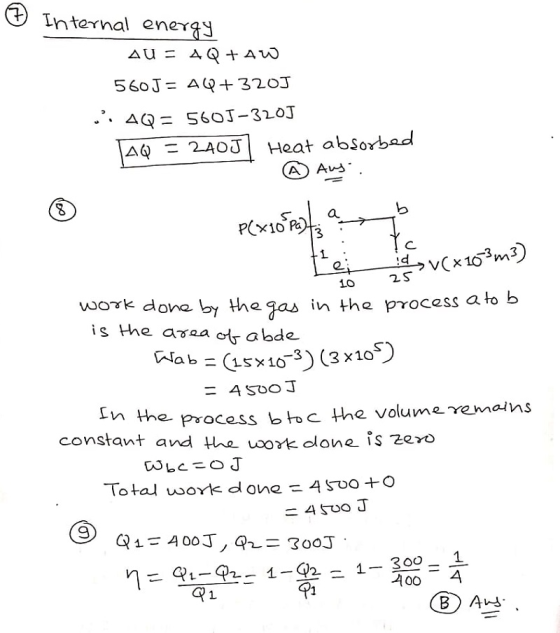 ⑦ Internal energy
ΔU = ΔQ + ΔW
560J = ΔQ + 320J
∴ ΔQ = 560J - 320J
ΔQ = 240J Heat absorbed
Ⓐ Ans.
⑧
P(×10⁵ Pa) 3 a b
1 e c
d V(×10⁻³m³)
10 25
work done by the gas in the process a to b
is the area of abde
Wab = (15×10⁻³) (3×10⁵)
= 4500J
In the process b to c the volume remains
constant and the work done is zero
Wbc = 0 J
Total work done = 4500 + 0
= 4500 J
⑨ Q1 = 400J, Q2 = 300J.
η = Q1-Q2/Q1 = 1 - Q2/Q1 = 1 - 300/400 = 1/4
Ⓑ Ans.